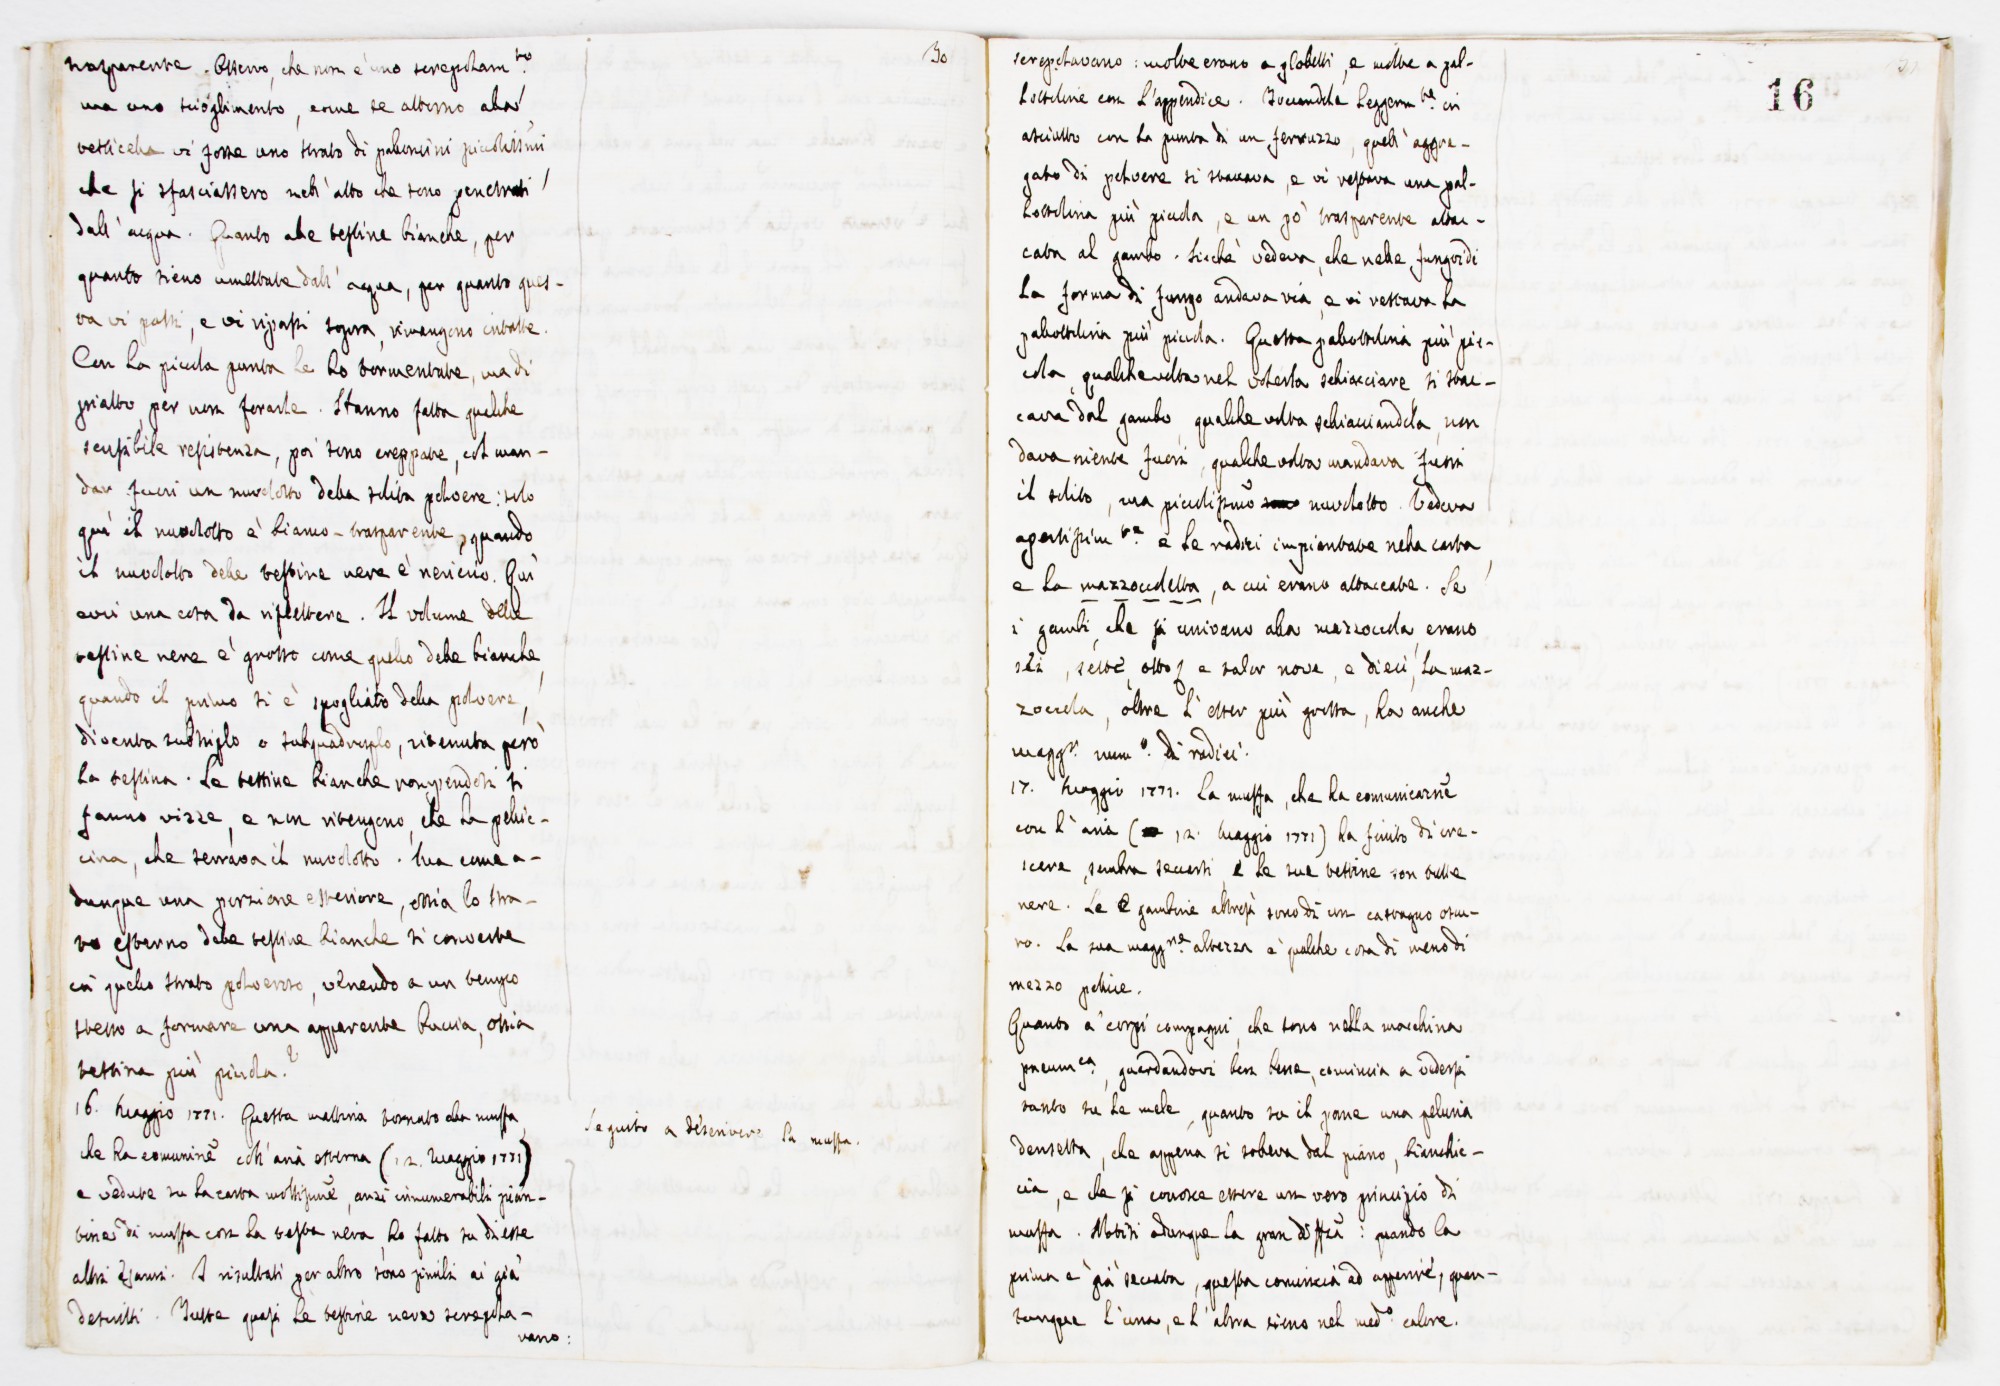 30
trasparente. Osservo, che non è uno screpolam.to
ma uno scioglimento, come se attorno alla
vessicella vi fosse uno strato di palloncini piccolissimi
che si sfasciassero nell'atto che sono penetrati
dall'acqua. Quanto alle testine bianche, per
quanto sieno umettate dall'acqua, per quanto ques-
ta vi passi, e vi ripassi sopra, rimangono intatte.
Con la piccola punta le ho tormentate, ma di
piatto, per non forarle. Hanno fatta qualche
sensibile resistenza, poi sono creppate, col man-
dar fuori un nuvolotto della solita polvere: solo
quà il nuvolotto è bianco-trasparente, quando
il nuvolotto delle testine nere è nericcio. Quì
evvi una cosa da riflettere. Il volume delle
testine nere è grosso come quello delle bianche,
quando il primo si è spogliato della polvere,
diventa subtriplo o subquadruplo, ritenuta però
la testina. Le testine bianche rompendosi si
fanno vizze, e non ritengono, che la pellic-
cina, che serrava il nuvolotto. Ma come a-
dunque una porzione esteriore, ossia lo stra-
to esterno delle testine bianche si converte
in quello strato polveroso, venendo a un tempo
stesso a formare una apparente buccia, ossia
testina più piccola?
16. Maggio 1771. Questa mattina tornato alla muffa,
che ha comunine coll'aria esterna (12. Maggio 1771)
e vedute su la carta moltissime, anzi innumerabili pian-
tine di muffa con la testa nera, ho fatto su di esse
altri esami. I risultati per altro sono simili ai già
descritti. Tutte quasi le testine nere screpola-
vano:
Seguito a descrivere la muffa.
16
31
screpolavano: molte erano a globetti, e molte a pal-
lottoline con l'appendice. Toccandole leggerm.te in
asciutto con la punta di un ferruzzo, quell'aggre-
gato di polvere si staccava, e vi restava una pal-
lottolina più piccola, e un pò trasparente attac-
cata al gambo. Sicchè vedeva, che nelle fungoidi
la forma di fungo andava via, e vi restava la
pallottolina più piccola. Questa pallottolina più pic-
cola, qualche volta nel volerla schiacciare si stac-
cava dal gambo qualche volta schiacciandola, non
dava niente fuori, qualche volta mandava fuori
il solito, ma piccolissimo nuvolotto. Vedeva
apertissim.te e le radici impiantate nella carta,
e la mazzocoletta, a cui erano attaccate. Se
i gambi, che si univano alla mazzocola, erano
sei, sette, otto, e talor nove, e dieci, la maz-
zocola, oltre l'esser più grossa, ha anche
magg.r num.o di radici.
17. Maggio 1771. La muffa, che ha comunicazne
con l'aria (12. Maggio 1771) ha finito di cre-
scere, sembra seccarsi, e le sue testine son tutte
nere. Le gambine altresì sono di un castagno oscu-
ro. La sua magg.re altezza è qualche cosa di meno di
mezzo pollice.
Quanto a' corpi compagni, che sono nella macchina
pneum.ca, guardandovi ben bene, comincia a vedersi
tanto su le mele, quanto su il pane una peluria
densetta, che appena si solleva dal piano, bianchic-
cia, e che si conosce essere un vero principio di
muffa. Notisi adunque la gran diffza: quando la
prima è già seccata, questa comincia ad apparire, quan-
tunque l'una, e l'altra sieno nel med.o calore.